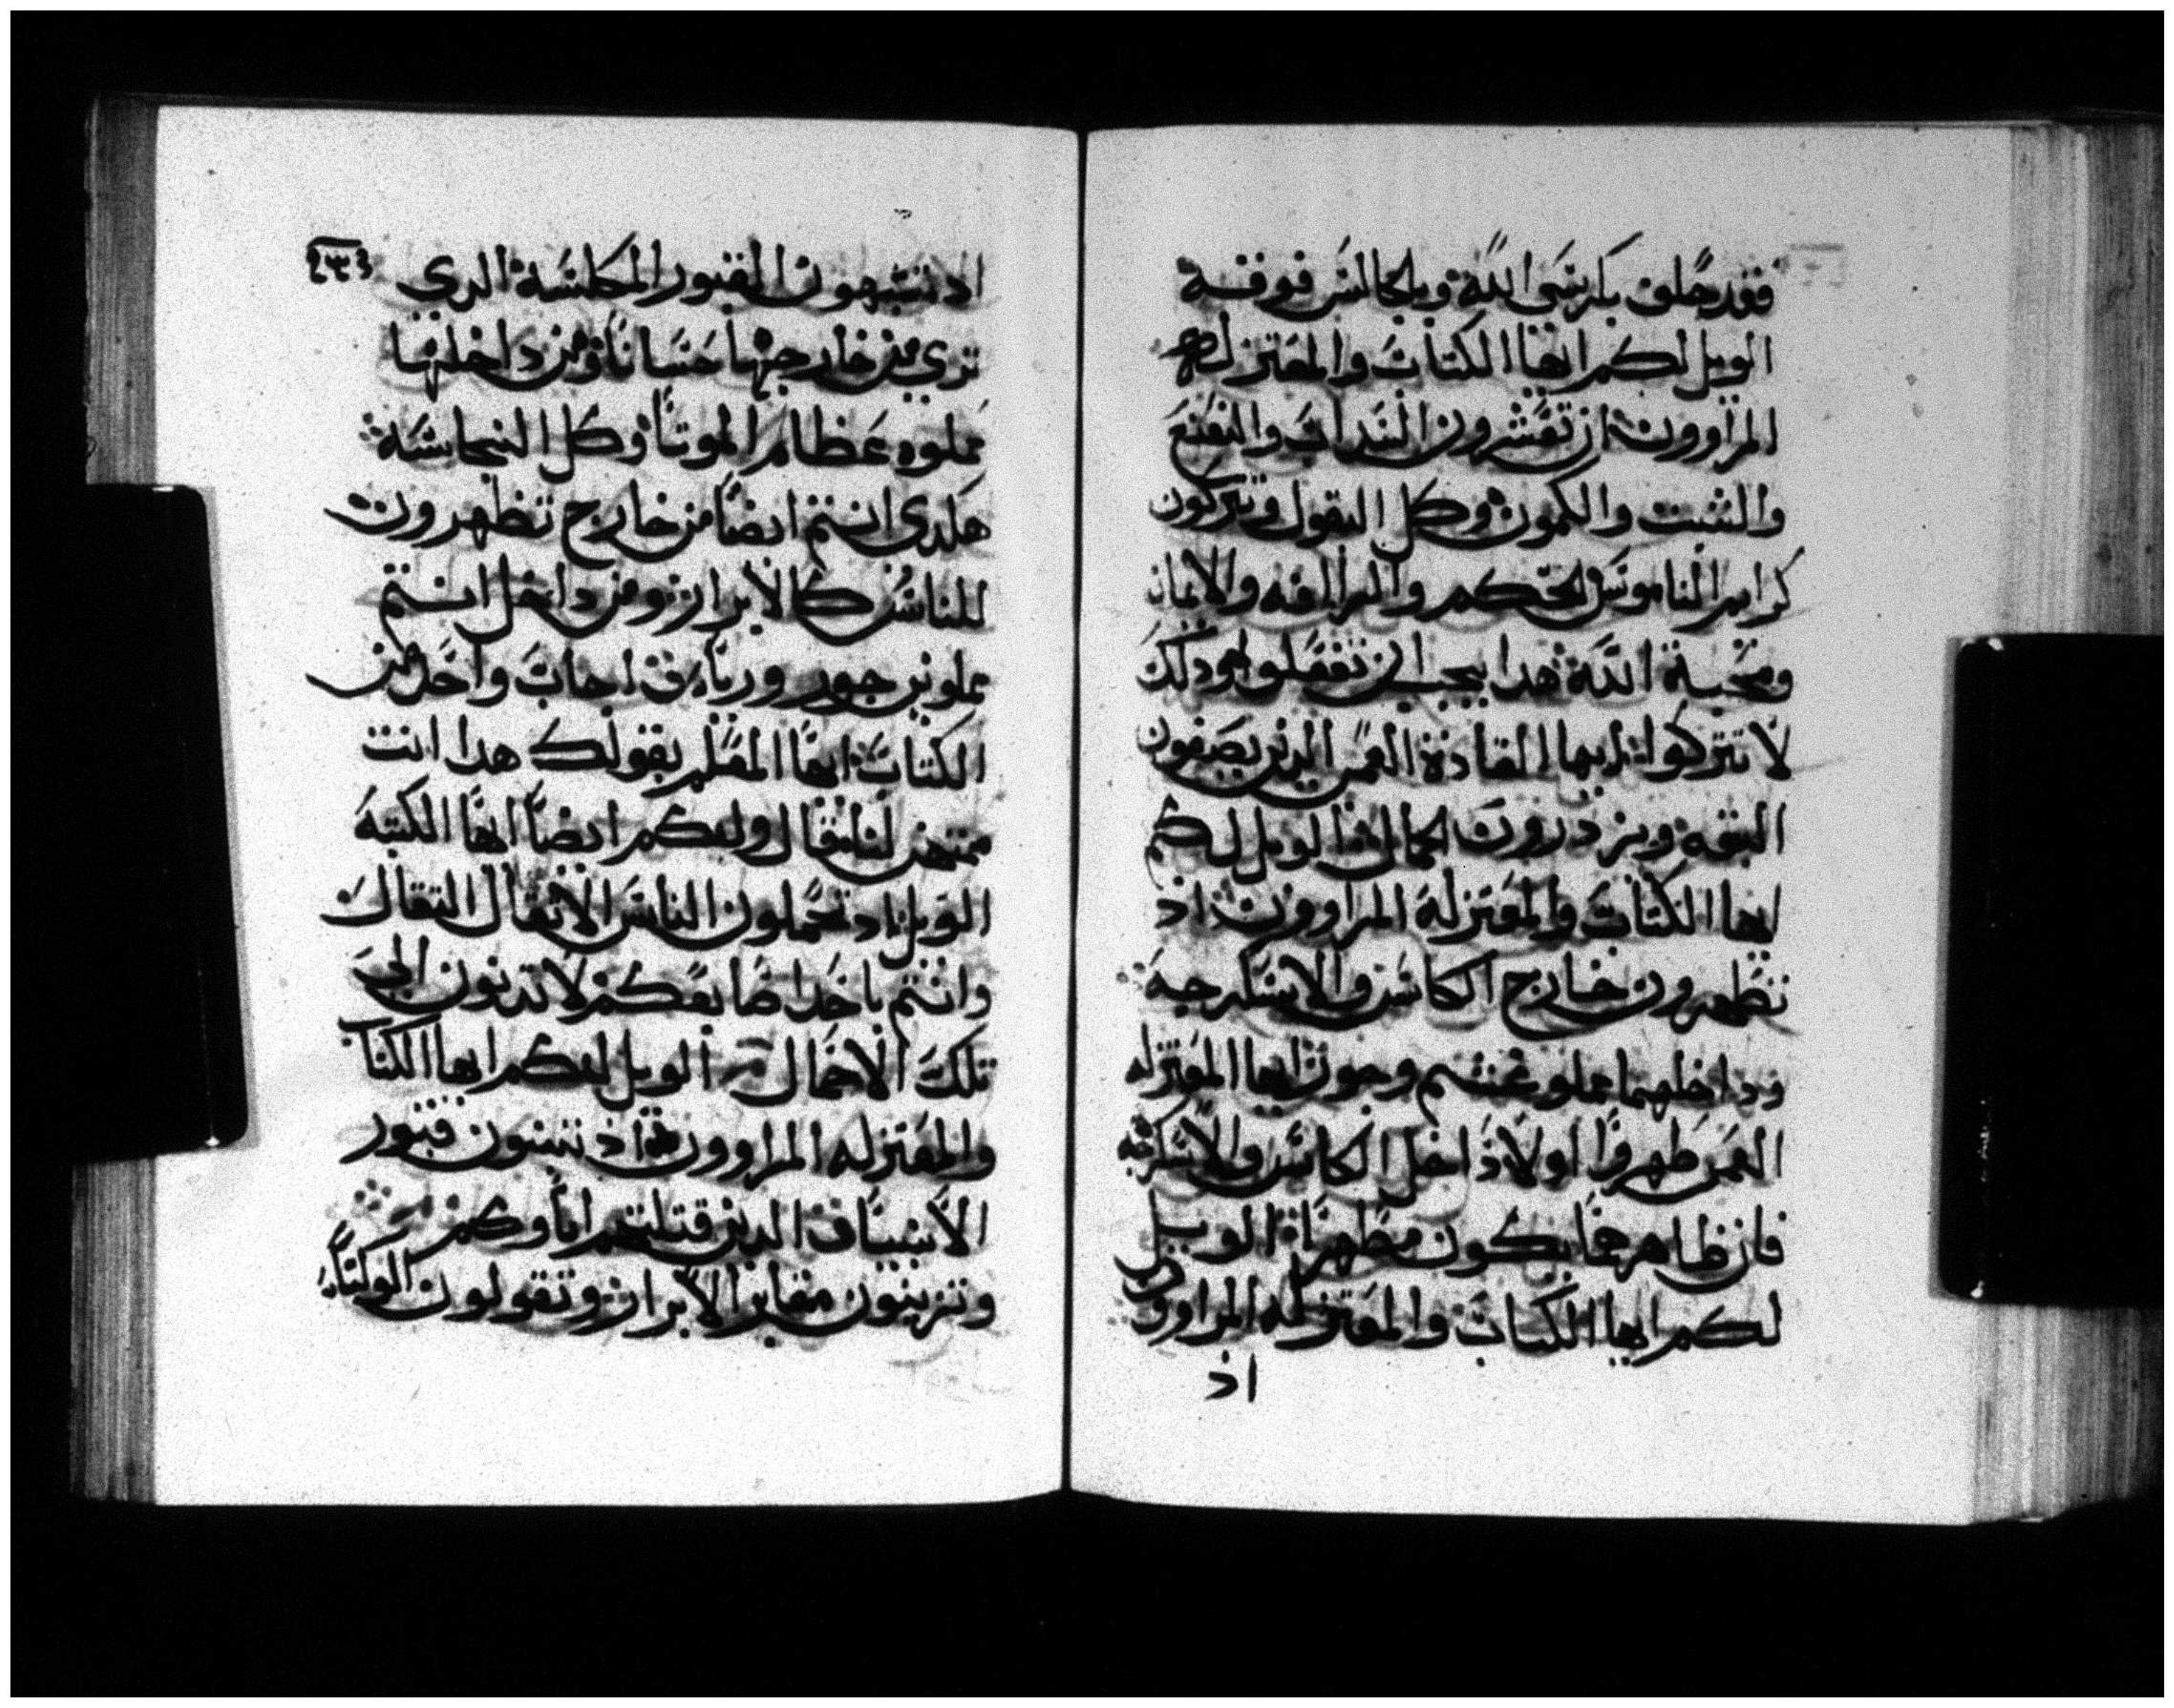 فقد حلف بكرسي الله وبالجالس فوقه
الويل لكم ايها الكتاب والمعتزله
المراوون اذ تعشرون السداب والنعنع
والشبت والكمون وكل البقول وتتركون
كراسي الناموس الحكم والرافه والايمان
ومحبة الله هدا يجب ان تفعلوه ودلك
لا تتركوا ايها القادة العمي الدين يصفون
البقه ويزدردون الجمال الويل لكم
ايها الكتاب والمعتزلة المراوون اد
تطهرون خارج الكاس والاسكرجة
وداخلهما مملو غشم وجور ايها المعتزله
العمي طهروا اولا داخل الكاس والاسكرجه
فان ظاهرهما يكون مطهرا الويل
لكم ايها الكتاب والمعتزله المراوون
اذ
اد تشبهون القبور المكلسة الدي
تري من خارجها حسانا ومن داخلها
مملوه عظام الموتا وكل النجاسة
هكدي انتم ايضا من خارج تظهرون
للناس كالابرار ومن داخل انتم
مملوين جور ورياء اجاب واحد من
الكتاب ايها المعلم بقولك هدا انت
ممتهن لنا فقال ولكم ايضا ايها الكتبة
الويل اد تحملون الناس الاثقال الثقال
وانتم باحدا صابعكم لا تدنون الي
تلك الاحمال الويل لكم ايها الكتاب
والمعتزله المراوون اذ تبنون قبور
الانبياء الدين قتلتهم اباوكم
وتزينون مقابر الابرار وتقولون لو كنا